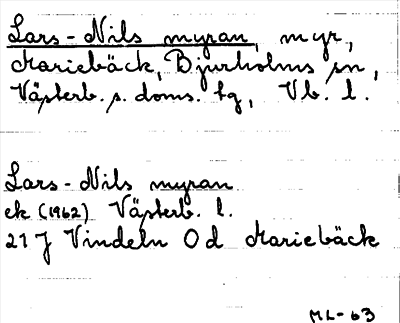 Lars-Nils myran, myr,
Mariebäck, Bjurholms sn,
Västerb. s. doms. tg, Vb. l.
Lars-Nils myran
ek (1962) Västerb. l.
21 J Vindeln Od Mariebäck
ML-63